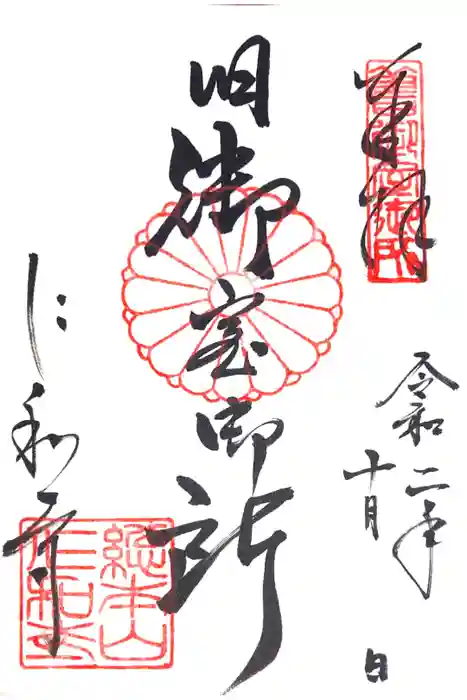 奉拝
舊御室御所
令和二年
十月 日
旧御室御所
仁和寺
総本山
仁和寺